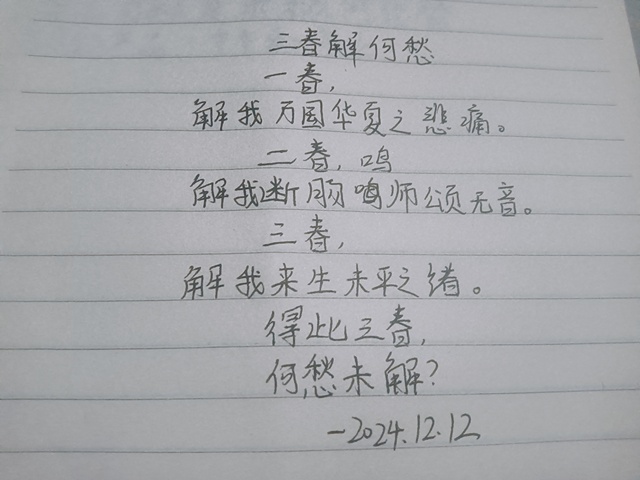 三春解何愁
一春，
解我万国华夏之悲痛。
二春，鸣
解我断肠鸣师颂无音。
三春，
解我来生未平之绪。
得此三春，
何愁未解？
—2024.12.12